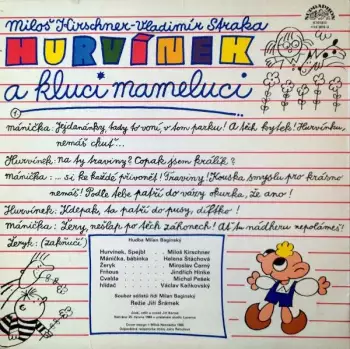 Miloš Kirschner - Vladimír Straka
HURVÍNEK
a kluci mameluci
mánička: Jejdanánky, tady to voní, v tom parku! A těch kytek! Hurvínku,
nemáš chuť...
Hurvínek: na ty traviny? Copak jsem králík?
mánička: ... si ke každé přivonět! Traviny! Kouska smyslu pro krásno
nemáš! Podle tebe patří do vázy okurka, že ano!
Hurvínek: Kdepak, ta patří do pusy, dítětko!
mánička: Žery, nešlap po těch záhonech! Ať tu nádheru nepolámeš!
Žeryk: (zakňučí)
Hudba Milan Baginský
Hurvínek, Spejbl Miloš Kirschner
Mánička, bábinka Helena Štáchová
Žeryk Miroslav Černý
Friteus Jindřich Hinke
Cvalda Michal Pešek
hlídač Václav Kaňkovský
Soubor sólistů řídí Milan Baginský
Režie Jiří Šrámek